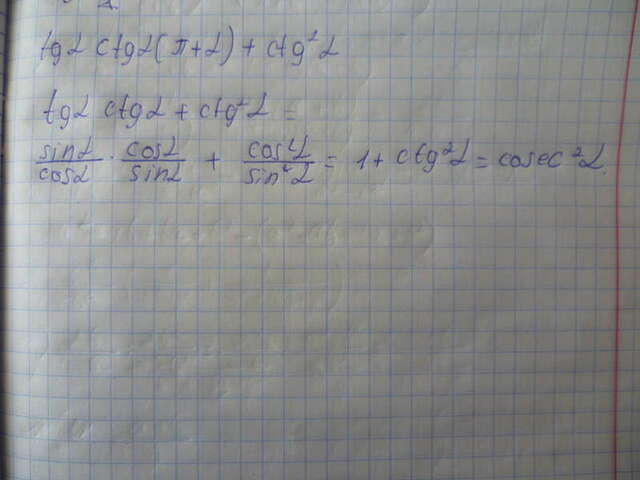 tgα ctgα(π+α) + ctg²α
tgα ctgα + ctg²α =
sinα/cosα · cosα/sinα + cos²α/sin²α = 1 + ctg²α = cosec²α.